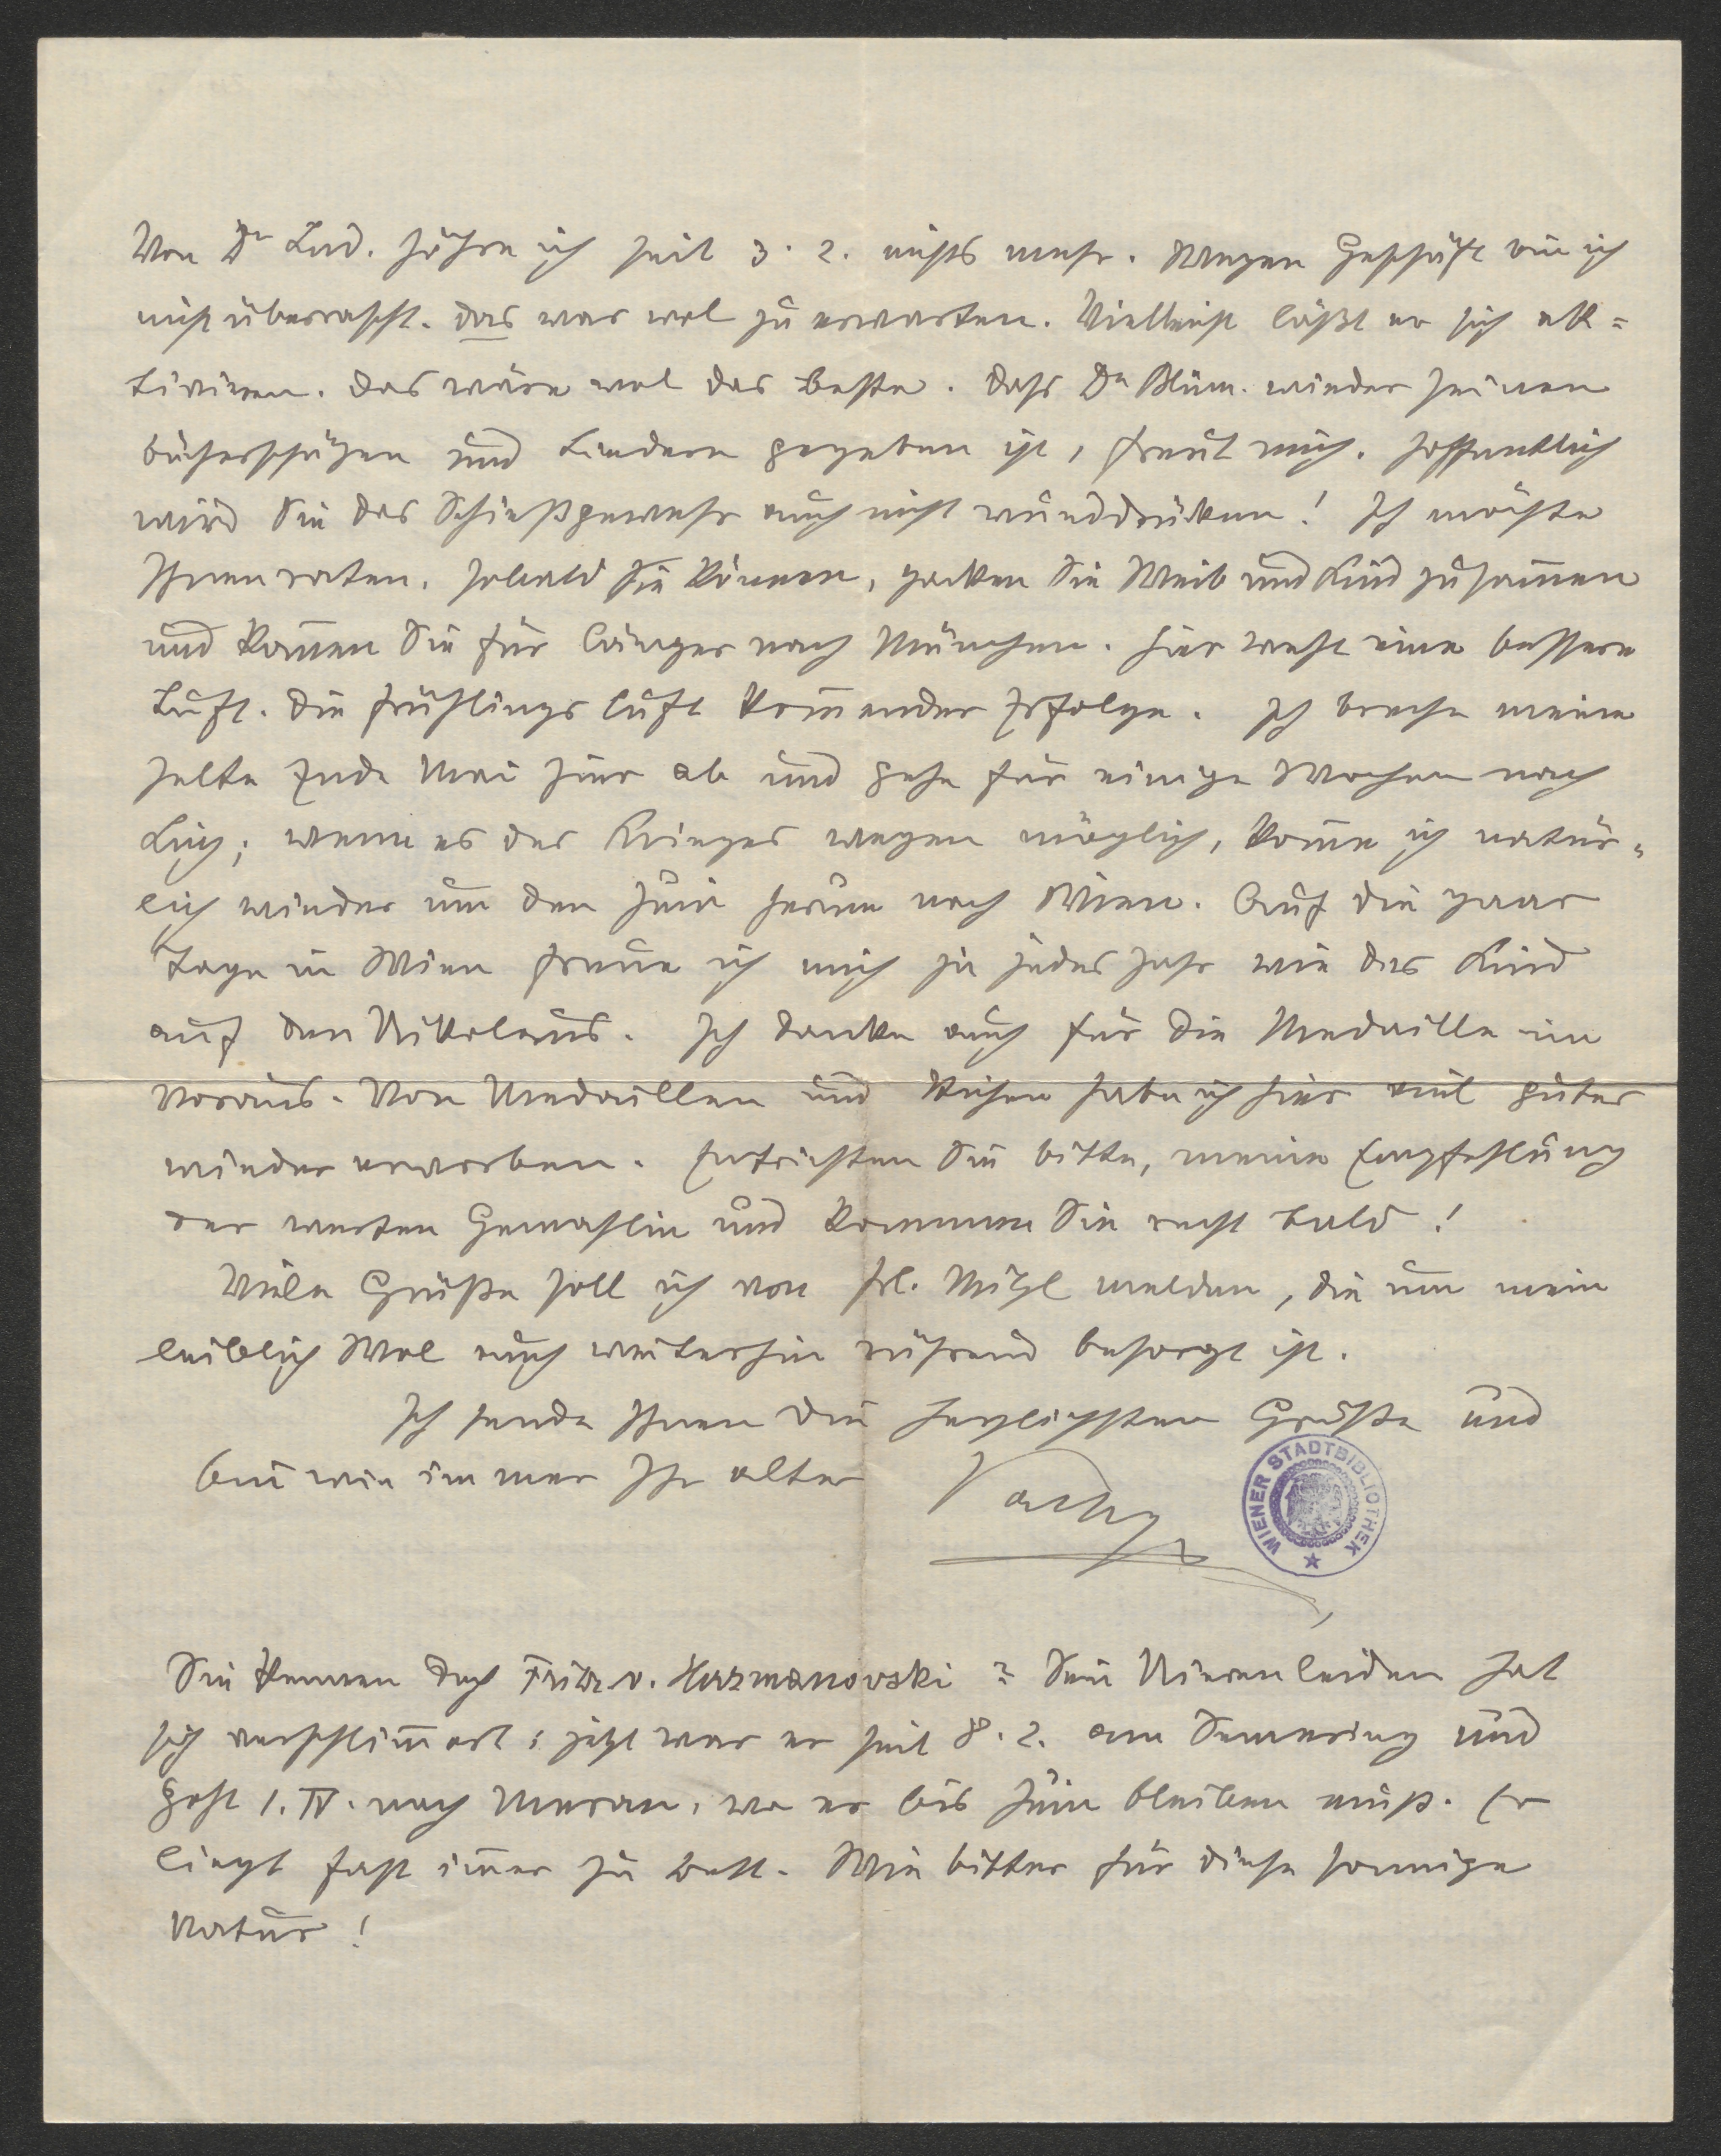 Von Dr Lud. höhre ich seit 3. 2. nichts mehr. Wegen Geschäft bin ich
nicht überrascht. das war wol zu erwarten. Vielleicht läßt er sich ak=
tiviren. das wäre wol das beste. dass Dr Blüm. wieder seinen
bücherschätzen und Liedern gegeben ist, freut mich. hoffentlich
wird Sie das Schießgewehr auch nicht wunddrücken! Ich möchte
Ihnen raten, sobald Sie können, packen Sie Weib und Kind zusam̄en
und kom̄en Sie für länger nach München. hier weht eine bessere
Luft. die frühlingsluft kom̄ender Erfolge. Ich breche meine
Zelte Ende Mai hier ab und gehe für einige Wochen nach
Linz; wenn es des Krieges wegen möglich, kom̄e ich natür=
lich wieder um den Juni herum nach Wien. Auf die paar
Tage in Wien freue ich mich ja jedes Jahr wie das Kind
auf den Nikolaus. Ich danke auch für die Medaille im
voraus. Von Medaillen und habe ich hier viel gutes
wieder erworben. Entrichten Sie bitte, meine Empfehlung
der werten Gemahlin und kommen Sie recht bald!
Viele Grüße soll ich von Frl. Mitzl melden, die um mein
leiblich Wol auch weiterhin rührend besorgt ist.
Ich sende Ihnen die herzlichsten Grüße und
bin wie immer Ihr alter
WIENER STADTBIBLIOTHEK
Sie kennen doch Fritz v. Herzmanovski? Sein Nierenleiden hat
sich verschlim̄ert; jetzt war er seit 8. 2. am Semering und
geht 1. IV. nach Meran, wo er bis Juni bleiben muß. Er
liegt fast im̄er zu bett. Wie bitter für diese sonnige
Natur!